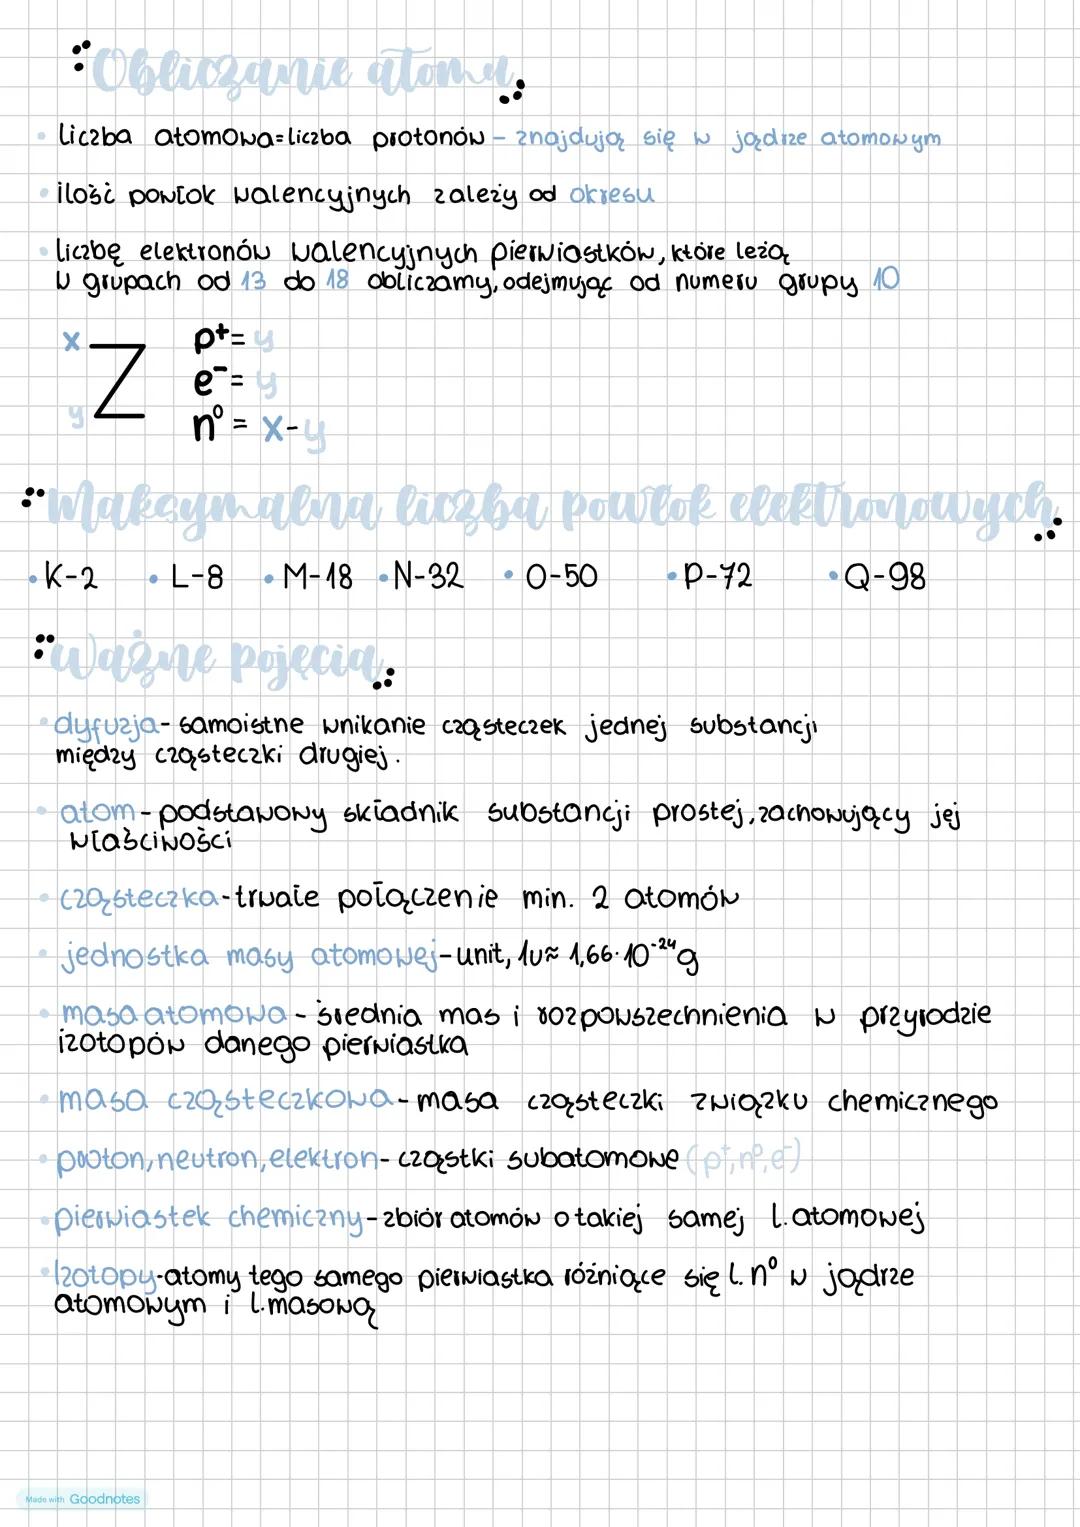 Obliczanie atomu
• liczba atomowa=liczba protonów – znajdują się w jądrze atomowym
• ilość powłok walencyjnych zależy od okresu
• liczbę elektronów walencyjnych pierwiastków, które leżą
w grupach od 13 do 18 obliczamy, odejmując od numeru grupy 10
x
Z
y
p⁺= y
e⁻= y
n⁰ = x-y
Maksymalna liczba powłok elektronowych
• K-2 • L-8 • M-18 • N-32 • O-50 • P-72 • Q-98
Ważne pojęcia
• dyfuzja- samoistne wnikanie cząsteczek jednej substancji
między cząsteczki drugiej.
• atom-podstawowy składnik substancji prostej, zachowujący jej
właściwości
• cząsteczka-trwałe połączenie min. 2 atomów
• jednostka masy atomowej-unit, 1u≈ 1,66·10⁻²⁴g
• masa atomowa - średnia mas i rozpowszechnienia w przyrodzie
izotopów danego pierwiastka
• masa cząsteczkowa-masa cząsteczki związku chemicznego
• proton, neutron, elektron- cząstki subatomowe (p⁺, n⁰, e⁻)
• pierwiastek chemiczny-zbiór atomów o takiej samej l. atomowej
• Izotopy-atomy tego samego pierwiastka różniące się l. n⁰ w jądrze
atomowym i l.masową
Made with Goodnotes